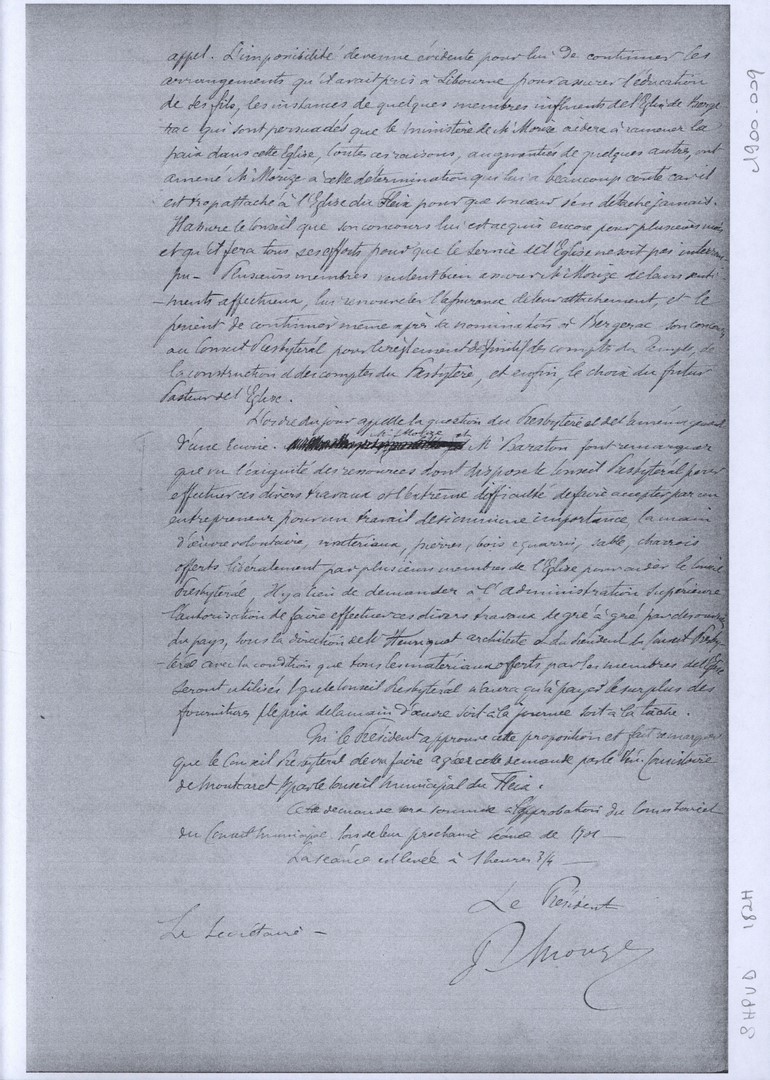 appel. L'impossibilité devenue évidente pour lui de continuer les
arrangements qu'il avait pris à Libourne pour assurer l'éducation
de ses fils, les instances de quelques membres influents de l'Eglise de Berge
rac qui sont persuadés que le ministère de Mr Mouze aidera à ramener la
paix dans cette Eglise, toutes ces raisons, augmentées de quelques autres, ont
amené Mr Mouze à cette détermination qui lui a beaucoup coûté car il
est trop attaché à l'Eglise du Fleix pour que son cœur s'en détache jamais.
Il assure le Conseil que son concours lui est acquis encore pour plusieurs mois
et qu'il fera tous ses efforts pour que le service de l'Eglise ne soit pas interrom-
pu - Plusieurs membres veulent bien assurer Mr Mouze de leurs senti-
-ments affectueux, lui renouveler l'assurance de leur attachement, et le
prient de continuer même après sa nomination à Bergerac son concours
au Conseil Presbytéral pour le règlement définitif des comptes du Temple, de
la construction et des comptes du Presbytère, et enfin, le choix du futur
Pasteur de l'Eglise.
L'ordre du jour appelle la question du Presbytère et de l'aménagement
d'une écurie. Mr Mouze et Mr Baraton font remarquer
que vu l'exiguité des ressources dont dispose le Conseil Presbytéral pour
effectuer ces divers travaux et l'extrême difficulté de faire accepter par un
entrepreneur pour un travail de si minime importance, la main
d'œuvre volontaire, matériaux, pierres, bois équarris, sable, charrois
offerts libéralement par plusieurs membres de l'Eglise pour aider le Conseil
Presbytéral, Il y a lieu de demander à l'administration Supérieure
l'autorisation de faire effectuer ces divers travaux de gré à gré par des ouvriers
du pays, sous la direction de Mr Henriquet architecte et du Président du Conseil Presby-
-téral avec la condition que tous les matériaux offerts par les membres de l'Eglise
seront utilisés & que le Conseil Presbytéral n'aura qu'à payer le surplus des
fournitures & le prix de la main d'œuvre soit à la journée soit à la tâche.
Mr le Président approuve cette proposition et fait remarquer
que le Conseil Presbytéral devra faire agréer cette demande par le Vén. Consistoire
de Montcaret & par le Conseil Municipal du Fleix.
Cette demande sera soumise à l'approbation du Consistoire et
du Conseil Municipal lors de leur prochaine séance de 1901 -
La séance est levée à 1 heures 3/4 -
Le Président
Le Secrétaire -
P. Mouze
J900-009
H281
8HPUD